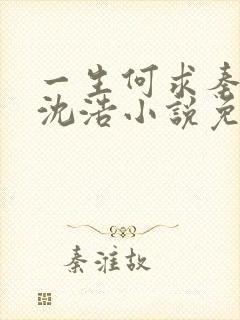 一生何求秦
沈浩小説免
秦淮故